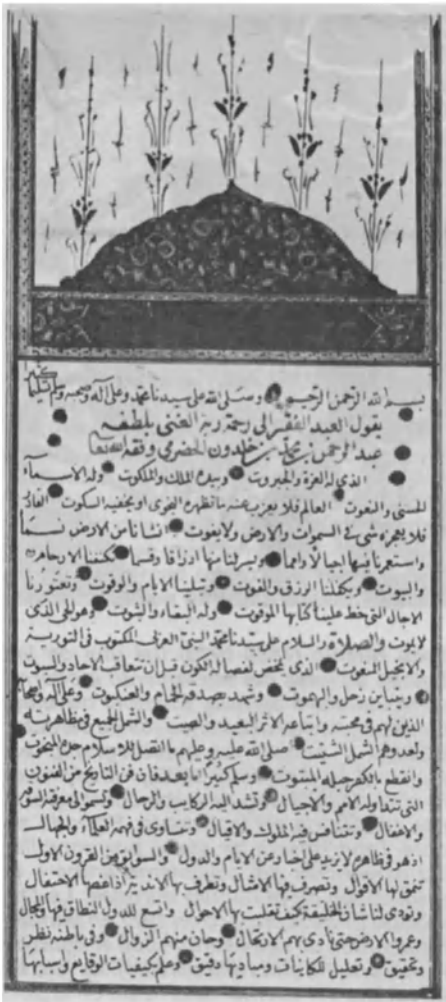 بسم الله الرحمن الرحيم وصلى الله على سيدنا محمد وعلى آله وصحبه وسلم تسليما كثيرا
يقول العبد الفقير إلى رحمة ربه الغني بلطفه
عبد الرحمن بن محمد بن خلدون الحضرمي وفقه الله تعا
الذي له العزة والجبروت وبيده الملك والملكوت وله الاسماء
الحسنى والنعوت العالم فلا يعزب عنه ما تظهره النجوى او يخفيه السكوت القادر
فلا يعجزه شي في السموات والارض ولا يفوت انشانا من الارض نسما
واستعمرنا فيها اجيالا وامما ويسر لنا منها ارزاقا وقسما تكنفنا الارحام
والبيوت ويكفلنا الرزق والقوت وتبلينا الايام والوقوت وتعتورنا
الاجال التي خط علينا كتابها الموقوت وله البقاء والثبوت وهو الحي الذي
لا يموت والصلاة والسلام على سيدنا محمد النبي العربي المكتوب في التورية
والانجيل المنعوت الذي تمخض لفصاله الكون قبل ان تتعاقب الاحاد والسبوت
ويتباين زحل واليهموت وشهد بصدقه الحمام والعنكبوت وعلى آله واصحابه
الذين لهم في محبته واتباعه الاثر البعيد والصيت والشمل الجميع في مظاهرته
ولعدوهم الشمل الشتيت صلى الله عليه وعليهم ما اتصل للاسلام جده المبخوت
وانقطع بالكفر حبله المبتوت وسلم كثيرا اما بعد فان فن التاريخ من الفنون
التي تتداوله الامم والاجيال وتشد اليه الركايب والرحال وتسمو الى معرفته السوقة
والاغفال وتتنافس فيه الملوك والاقيال وتتساوى في فهمه العلماء والجهال
اذ هو في ظاهره لا يزيد على اخبار عن الايام والدول والسوابق من القرون الاول
تنمق لها الاقوال وتصرف فيها الامثال وتطرف بها الاندية اذا غصها الاحتفال
وتودي لنا شان الخليقة كيف تقلبت بها الاحوال واتسع للدول النطاق فيها والمجال
وعمروا الارض حتى نادى بهم الارتحال وحان منهم الزوال وفي باطنه نظر
وتحقيق وتعليل للكاينات ومباديها دقيق وعلم بكيفيات الوقايع واسبابها